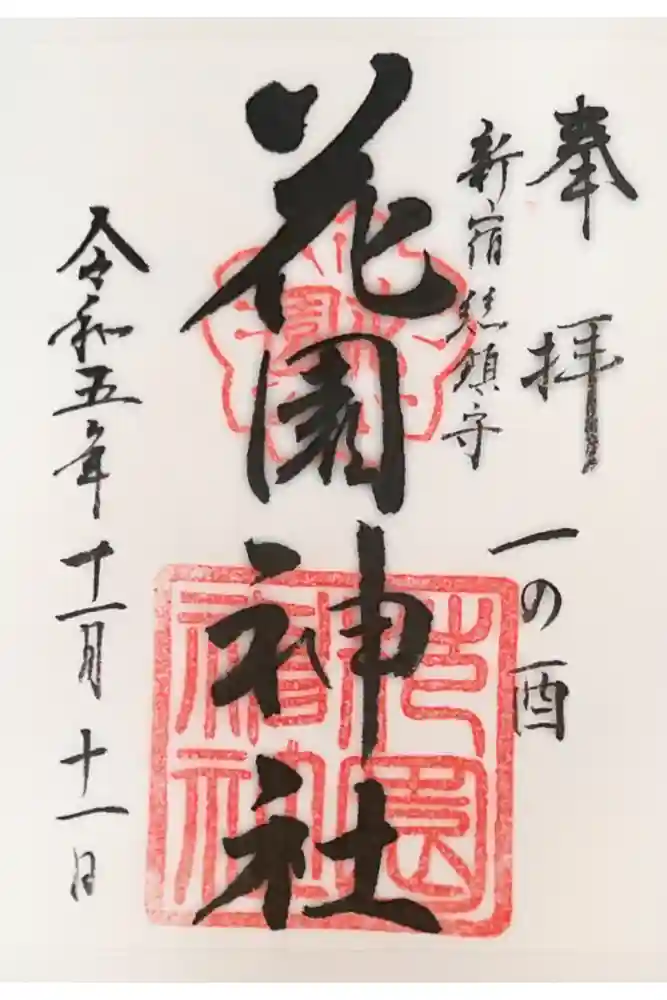 奉拝
新宿総鎮守
一の酉
花園神社
令和五年十一月十一日